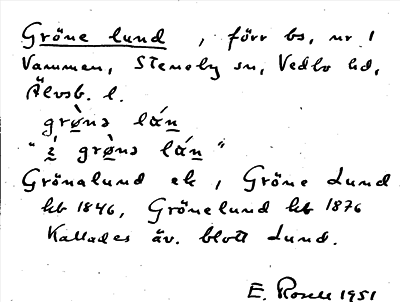 Gröne lund, förr bs, nr 1
Vammen, Steneby sn, Vedbo hd,
Älvsb. l.
grø̀nə lán
"i grø̀nə lán"
Grönalund ek, Gröne Lund
hb 1846, Grönelund hb 1876
Kallades äv. blott Lund.
E. Rosell 1951